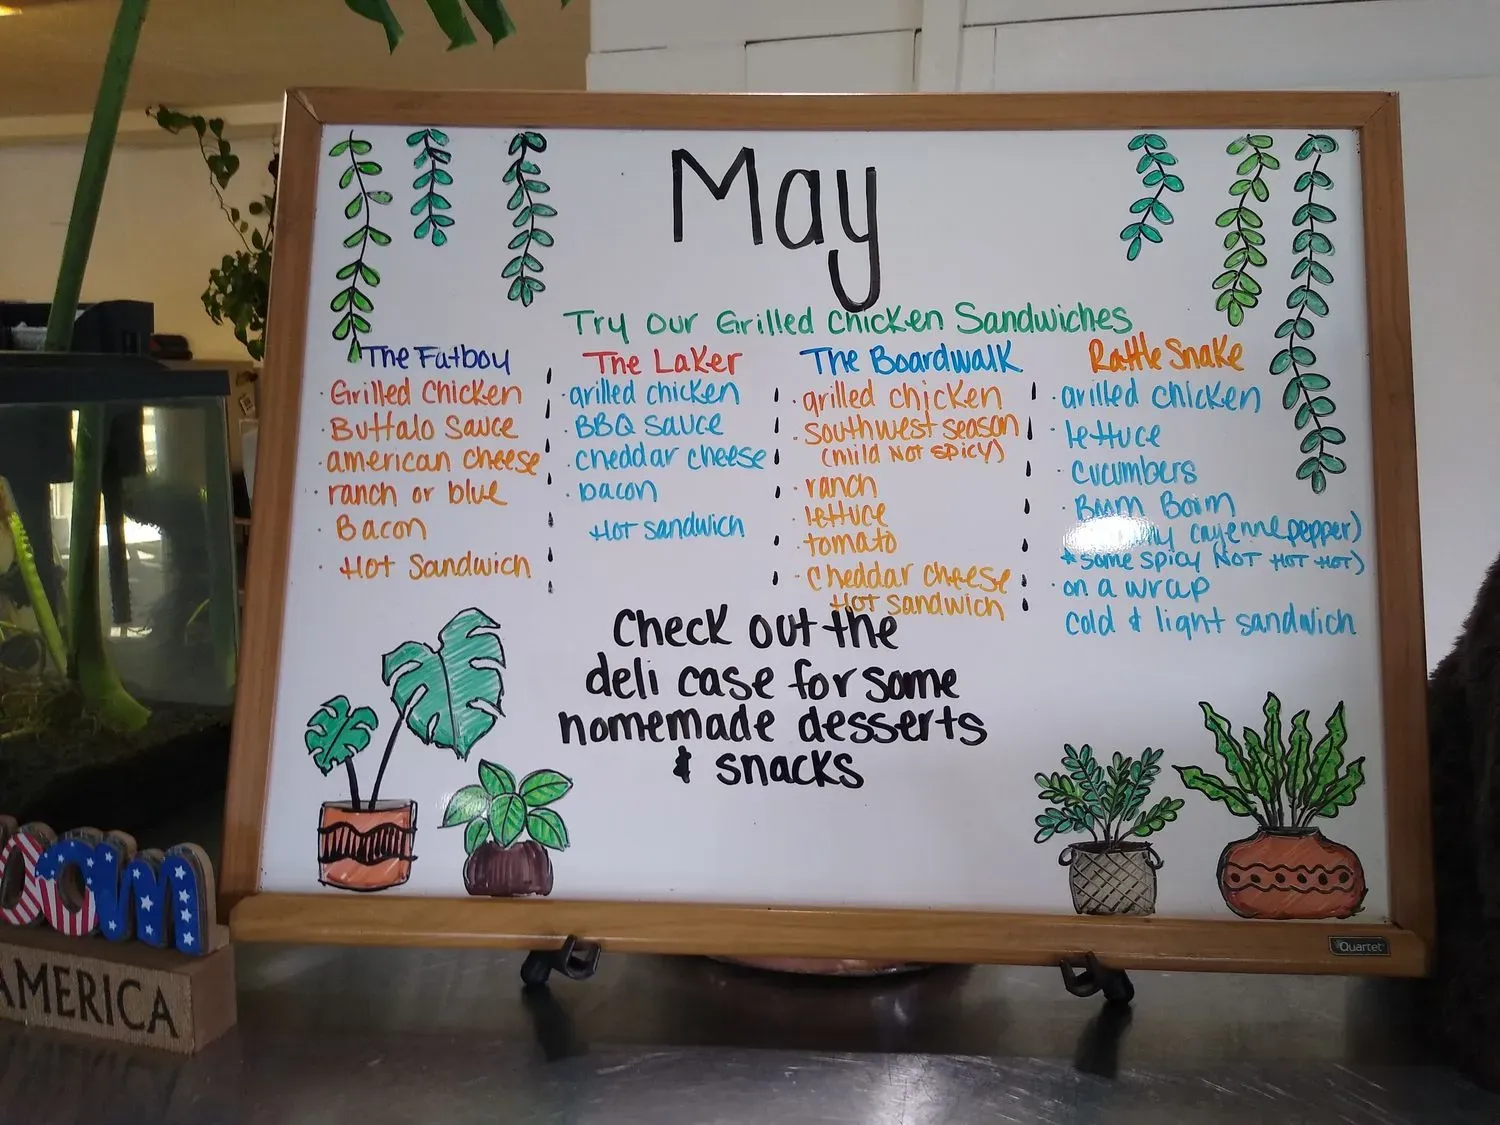 May
Try our Grilled Chicken Sandwiches
The Fatboy
· Grilled Chicken
· Buffalo Sauce
· american cheese
· ranch or blue
· Bacon
· Hot Sandwich
The Laker
· grilled chicken
· BBQ sauce
· cheddar cheese
· bacon
Hot sandwich
The Boardwalk
· grilled chicken
· Southwest season
(mild NOT spicy)
· ranch
· lettuce
· tomato
· cheddar cheese
Hot sandwich
Rattle Snake
· grilled chicken
· lettuce
· cucumbers
· Boom Boom
cayenne pepper)
* some spicy NOT HOT HOT)
· on a wrap
cold & light sandwich
Check out the
deli case for some
homemade desserts
& snacks
Quartet
AMERICA